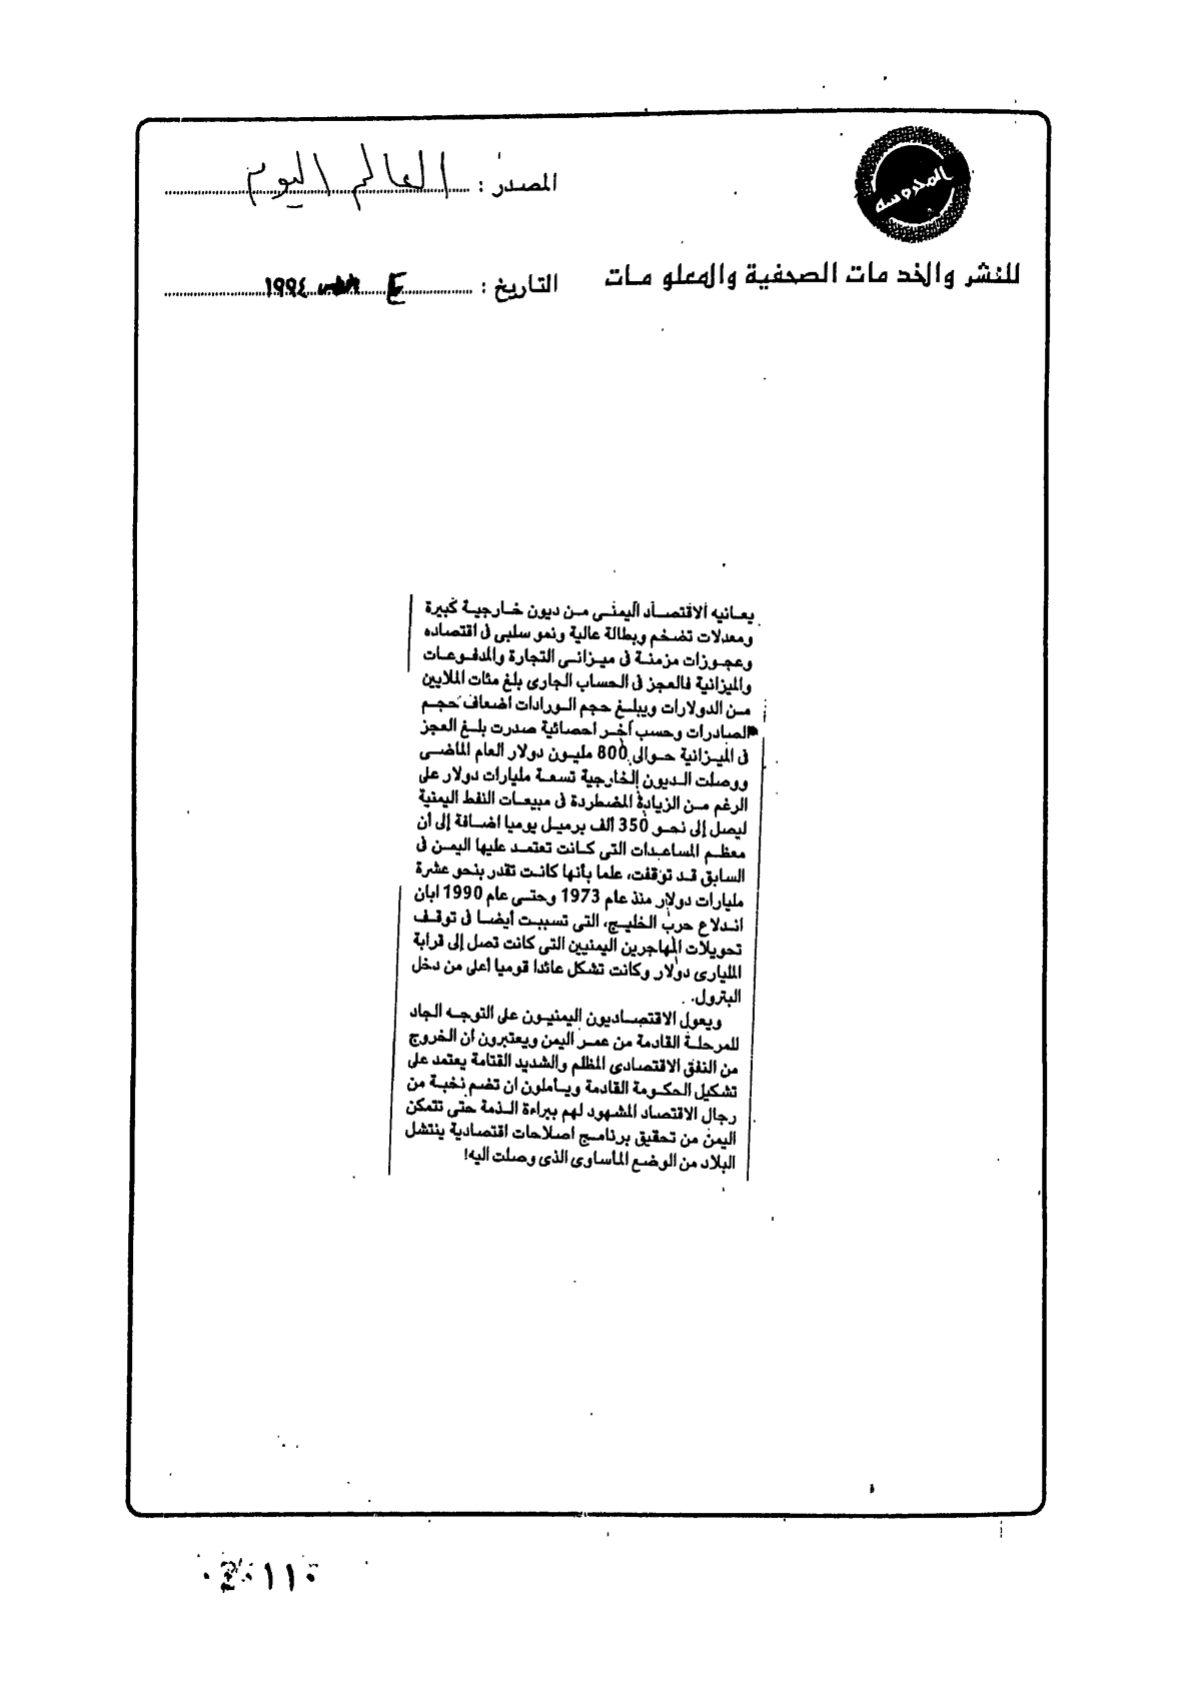 المصدر : العالم اليوم
المحروسة
للنشر والخدمات الصحفية والمعلومات
التاريخ : ٤ ١٩٩٤
يعانيه الاقتصاد اليمنى من ديون خارجية كبيرة
ومعدلات تضخم وبطالة عالية ونمو سلبى فى اقتصاده
وعجوزات مزمنة فى ميزانى التجارة والمدفوعات
والميزانية فالعجز فى الحساب الجارى بلغ مئات الملايين
من الدولارات ويبلغ حجم الورادات أضعاف حجم
الصادرات وحسب أخر احصائية صدرت بلغ العجز
فى الميزانية حوالى 800 مليون دولار العام الماضى
ووصلت الديون الخارجية تسعة مليارات دولار على
الرغم من الزيادة المضطردة فى مبيعات النفط اليمنية
ليصل إلى نحو 350 ألف برميل يوميا اضافة إلى أن
معظم المساعدات التى كانت تعتمد عليها اليمن فى
السابق قد توقفت، علما بأنها كانت تقدر بنحو عشرة
مليارات دولار منذ عام 1973 وحتى عام 1990 ابان
اندلاع حرب الخليج، التى تسببت أيضا فى توقف
تحويلات المهاجرين اليمنيين التى كانت تصل إلى قرابة
المليارى دولار وكانت تشكل عائدا قوميا أعلى من دخل
البترول.
ويعول الاقتصاديون اليمنيون على التوجه الجاد
للمرحلة القادمة من عمر اليمن ويعتبرون أن الخروج
من النفق الاقتصادى المظلم والشديد القتامة يعتمد على
تشكيل الحكومة القادمة ويأملون ان تضم نخبة من
رجال الاقتصاد المشهود لهم ببراءة الذمة حتى تتمكن
اليمن من تحقيق برنامج اصلاحات اقتصادية ينتشل
البلاد من الوضع المأساوى الذى وصلت اليه!